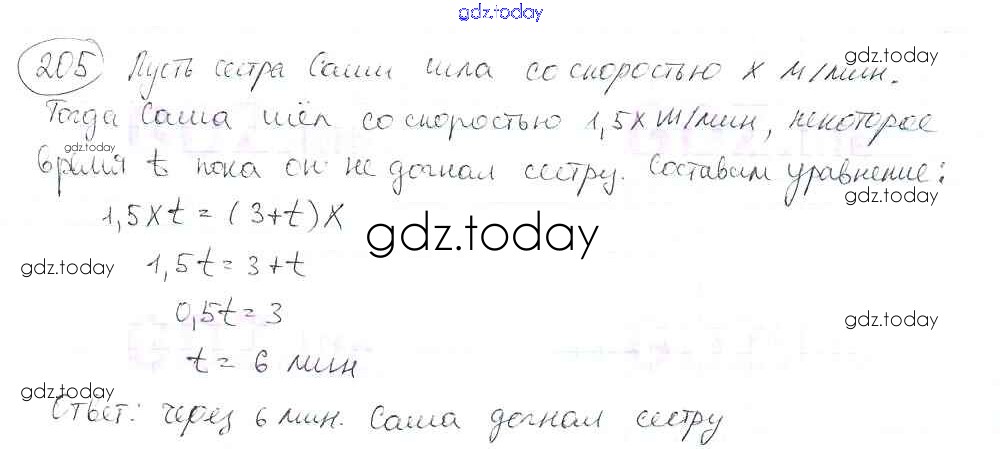 gdz.today
205 Пусть сестра Саши шла со скоростью x м/мин.
gdz.today
Тогда Саша шёл со скоростью 1,5x м/мин, некоторое
gdz.today
время t пока он не догнал сестру. Составим уравнение:
gdz.today
1,5xt = (3+t)x
gdz.today
gdz.today
1,5t = 3+t
0,5t = 3
gdz.today
t = 6 мин
gdz.today
Ответ: через 6 мин. Саша догнал сестру